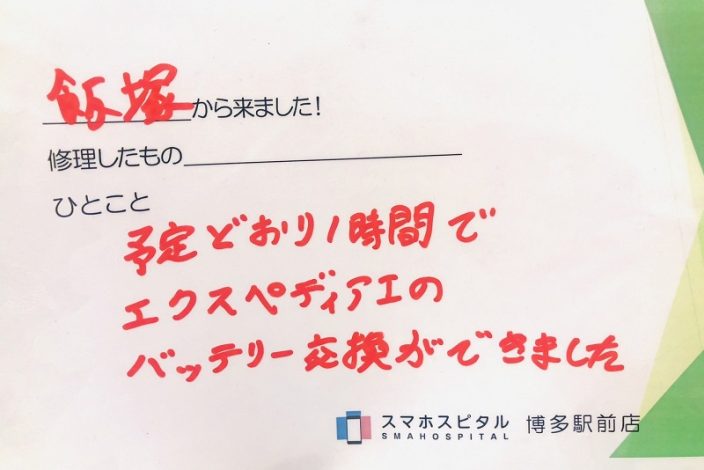 飯塚から来ました!
修理したもの
ひとこと
予定どおり1時間で
エクスペディアエの
バッテリー交換ができました
スマホスピタル 博多駅前店
SMAHOSPITAL